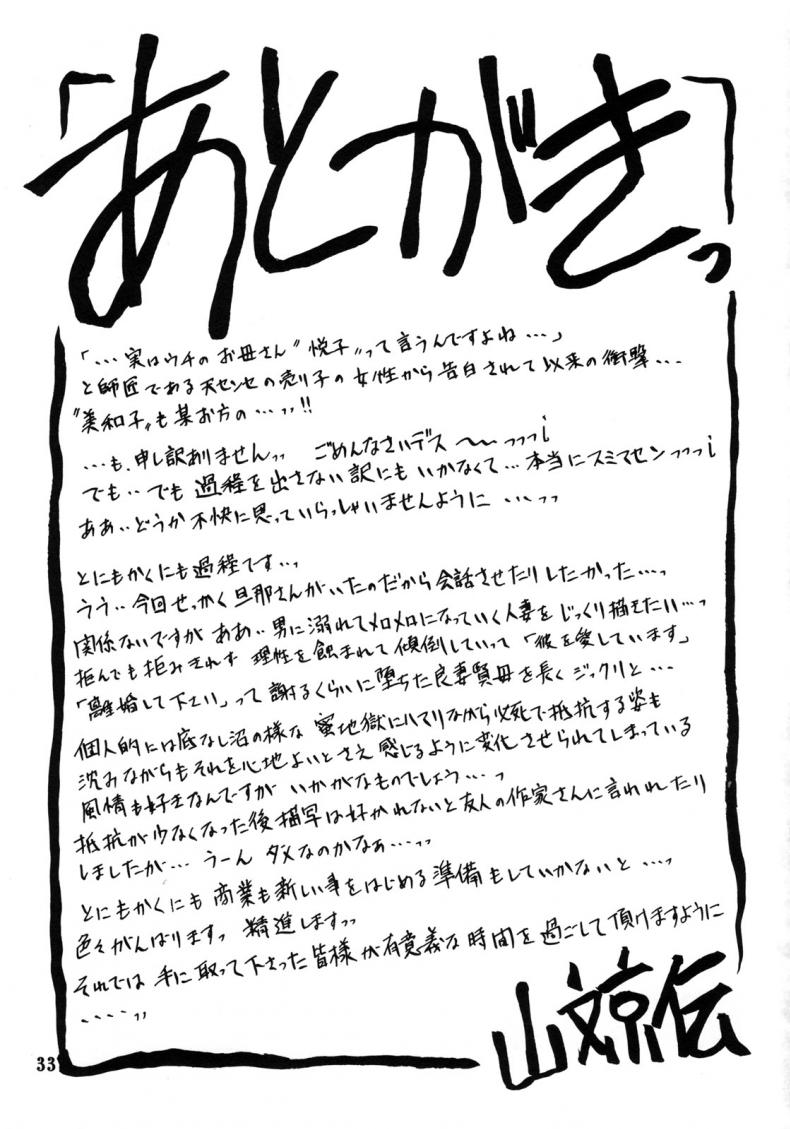 「あとがきっ」
「…実はウチのお母さん〝悦子〟って言うんですよね…」
と師匠である天センセの売り子の女性から告白されて以来の衝撃…
〝美和子〟も某お方の…ッッ!!
…も、申し訳ありませんッッ ごめんなさいデス〜〜っっっ¡
でも‥でも過程を出さない訳にもいかなくて…本当にスミマセンっっっ¡
ああ‥どうか不快に思っていらっしゃいませんように…ッッ
とにもかくにも過程です…っ
うう‥今回せっかく旦那さんがいたのだから会話させたりしたかった…っ
関係ないですが ああ‥男に溺れてメロメロになっていく人妻をじっくり描きたい…っ
拒んでも拒みきれず 理性を蝕まれて傾倒していって「彼を愛しています」
「離婚して下さい」って謝るくらいに堕ちた良妻賢母を長くジックリと…
個人的には底なし沼の様な 蜜地獄にハマりながら必死で抵抗する姿も
沈みながらもそれを心地よいとさえ感じるように変化させられてしまっている
風情も好きなんですが いかがなものでしょう…っ
抵抗が少なくなった後描写は好かれないと友人の作家さんに言われたり
しましたが… うーん ダメなのかなぁ…ッッ
とにもかくにも 商業も新しい事をはじめる準備もしていかないと…っ
色々がんばりますっ 精進しますッッ
それでは 手に取って下さった皆様が有意義な時間を過ごして頂けますように
……ッッ
山文京伝
33